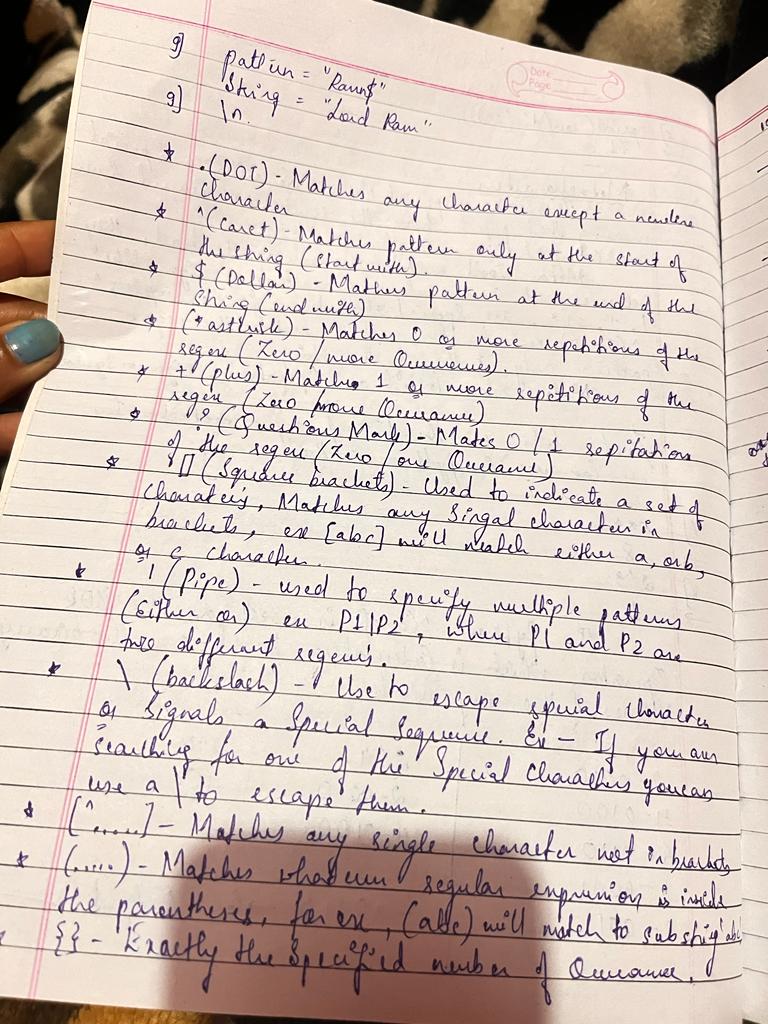 Date
Page
g] pattern = "Ram$"
String = "Lord Ram"
g] \n.
* .(DOT) - Matches any character except a newline
character
* ^(Caret) - Matches pattern only at the start of
the string (start with).
* $ (Dollar) - Mathes pattern at the end of the
string (end with)
* (*astrisk) - Matches 0 or more repetitions of the
regex (Zero / more Occurences).
* + (plus) - Matches 1 or more repititions of the
regex (Zero /more Occurance)
* ? (Questions Mark) - Mates 0 / 1 repitation
of the regex (Zero / one Occurance)
* [] (Square brackets) - Used to indicate a set of
characters, Matches any Singal character in
brackets, ex [abc] will match either a, or b,
or c character.
* | (Pipe) - used to specify multiple patterns
(Either or) ex P1|P2, when P1 and P2 are
two different regex's.
* \ (backslash) - Use to escape special character
or signals a Special Sequence. Ex - If you are
searching for one of the Special characters you can
use a \ to escape them.
* [^......] - Matches any single character not in brackets
* (.....) - Matches whatever regular expression is inside
the parentheses, for ex, (abc) will match to substring 'abc
{} - Exactly the specified number of Occurance.